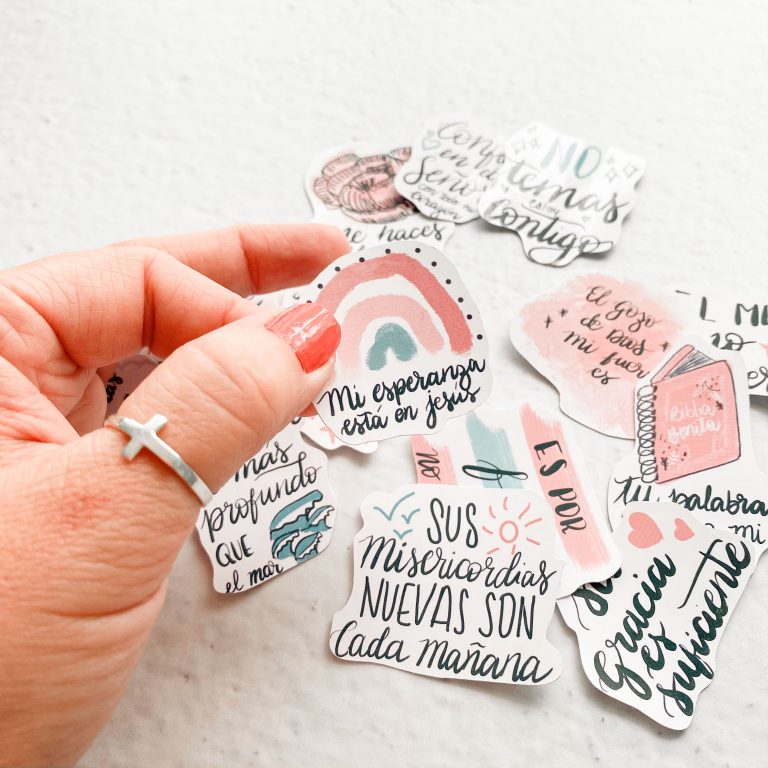 en
Señor
con todo mi
corazón
NO
temas
estoy
contigo
me haces
El Gozo
de Dios
mi
es
Mi esperanza
está en jesús
Biblia
Bonita
Tu palabra
mi
no
ES POR
mas
profundo
QUE
el mar
SUS
Misericordias
NUEVAS SON
Cada mañana
Gracia
es
suficiente